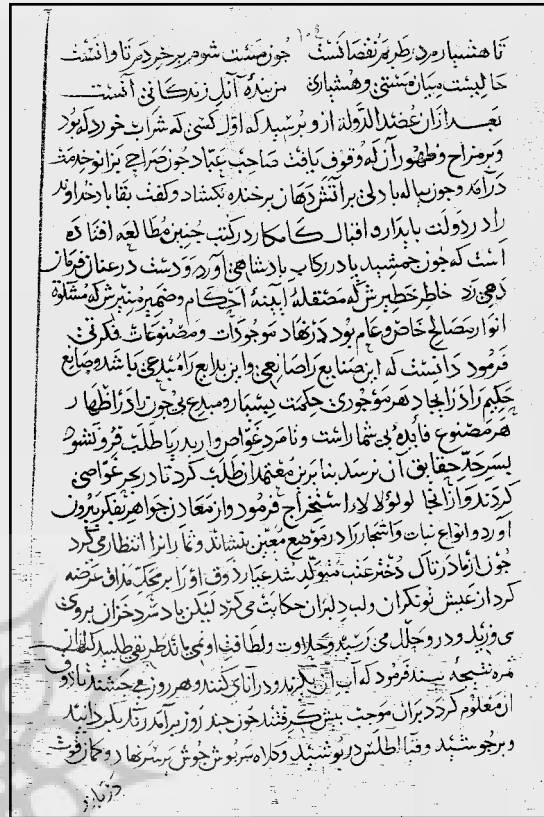 ۱۰۴
تا هشیارم در طربم نقصانست چون مست شوم بر خردم تاوانست
حالیست میان مستی و هشیاری من بنده آنک زندکانی آنست
بعد ازان عضد الدوله ازو برسید که اوّل کسی که شراب خورد که بود
و بر مزاج و ظهور آن که وقوف یافت صاحب عباد چون صراحی بزانو خدمت
درآمد و چون بیاله با دلی بر آتش دهان بر خنده بکشاد و کفت بقا باد خداوند
را در دولت بایدار و اقبال کامکار در کتب جنین مطالعه افتاده
است که جون جمشید با در رکاب بادشاهی آورد و دست در عنان فرمان
دهی زد خاطر خطیرش که مصقله آیینه احکام و ضمیر منیرش که مشکوة
انوار مصالح خاص و عام بود در نهاد موجودات و مصنوعات فکرتی
فرمود دانست که این صنایع را صانعی و این بدایع را مبدعی باشد و صانع
حکیم را در ایجاد هر موجودی حکمت بسیار و مبدع بی جون را در اظهار
هر مصنوع فایده بی شمارست و تا مرد غوّاص وار بدریا طلب فرو نشود
بسر حدّ حقایق آن نرسد بنا برین معتمدان طلب کرد تا در بحر غوّاصی
کردند و از انجا لولؤ لالا را استخراج فرمود و از معادن جواهر بفکر بیرون
آورد و انواع نبات و اشجار را در موضع معیّن بنشاند و ثمار انرا انتظار می کرد
جون از مادر تاک دختر عنب متولد شد عیار ذوق او را بر محک مذاق عرضه
کرد از عیش نوتکران و لب دلبران حکایت می کرد لیکن باد سرد خزان بروی
می وزید و در وخلل می رسید و حلاوت و لطافت او نمی باند طریقی طلبید که از آن
ثمره نتیجهٔ بیند فرمود که آب آن بکیرند و در آنای کنند و هر روز می جشند تا ذوق
آن معلوم کردد بران موجب بیش کرفتند جون جند روز برآمد رنک بکردانید
و بر جوشید و قبا اطلس در بوشید و کلاه سربوش جوش بر سر نهاد و کمان قوت